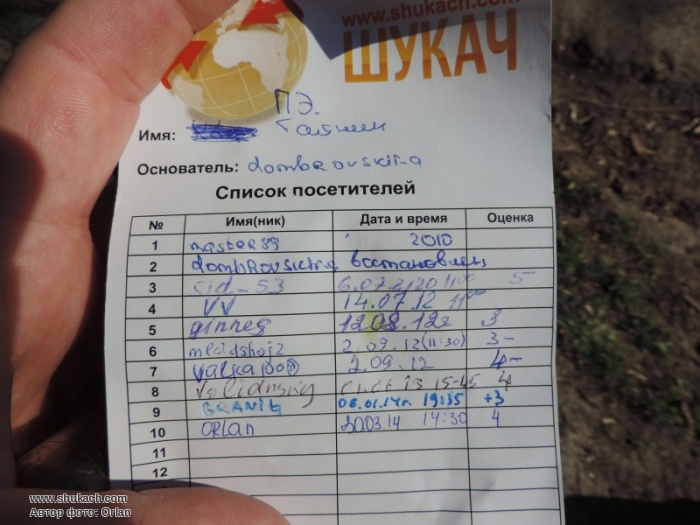 www.shukach.com
ШУКАЧ
ПЭ.
Имя:
Основатель: dombrovskiiа
Список посетителей
№ Имя(ник) Дата и время Оценка
1 master89 2010
2 dombrovskiiy востановлен
3 cid_53 5
4 VV 14.07.12
5 ginneg 12.08.12г 3
6 2.09.12(11:30) 3-
7 2.09.12 4-
8 15-45 4
9 GRANit 06.01.14г. 19:35 +3
10 Orlan 30.03.14 14:30 4
11
12
www.shukach.com
Автор фото: Orlan